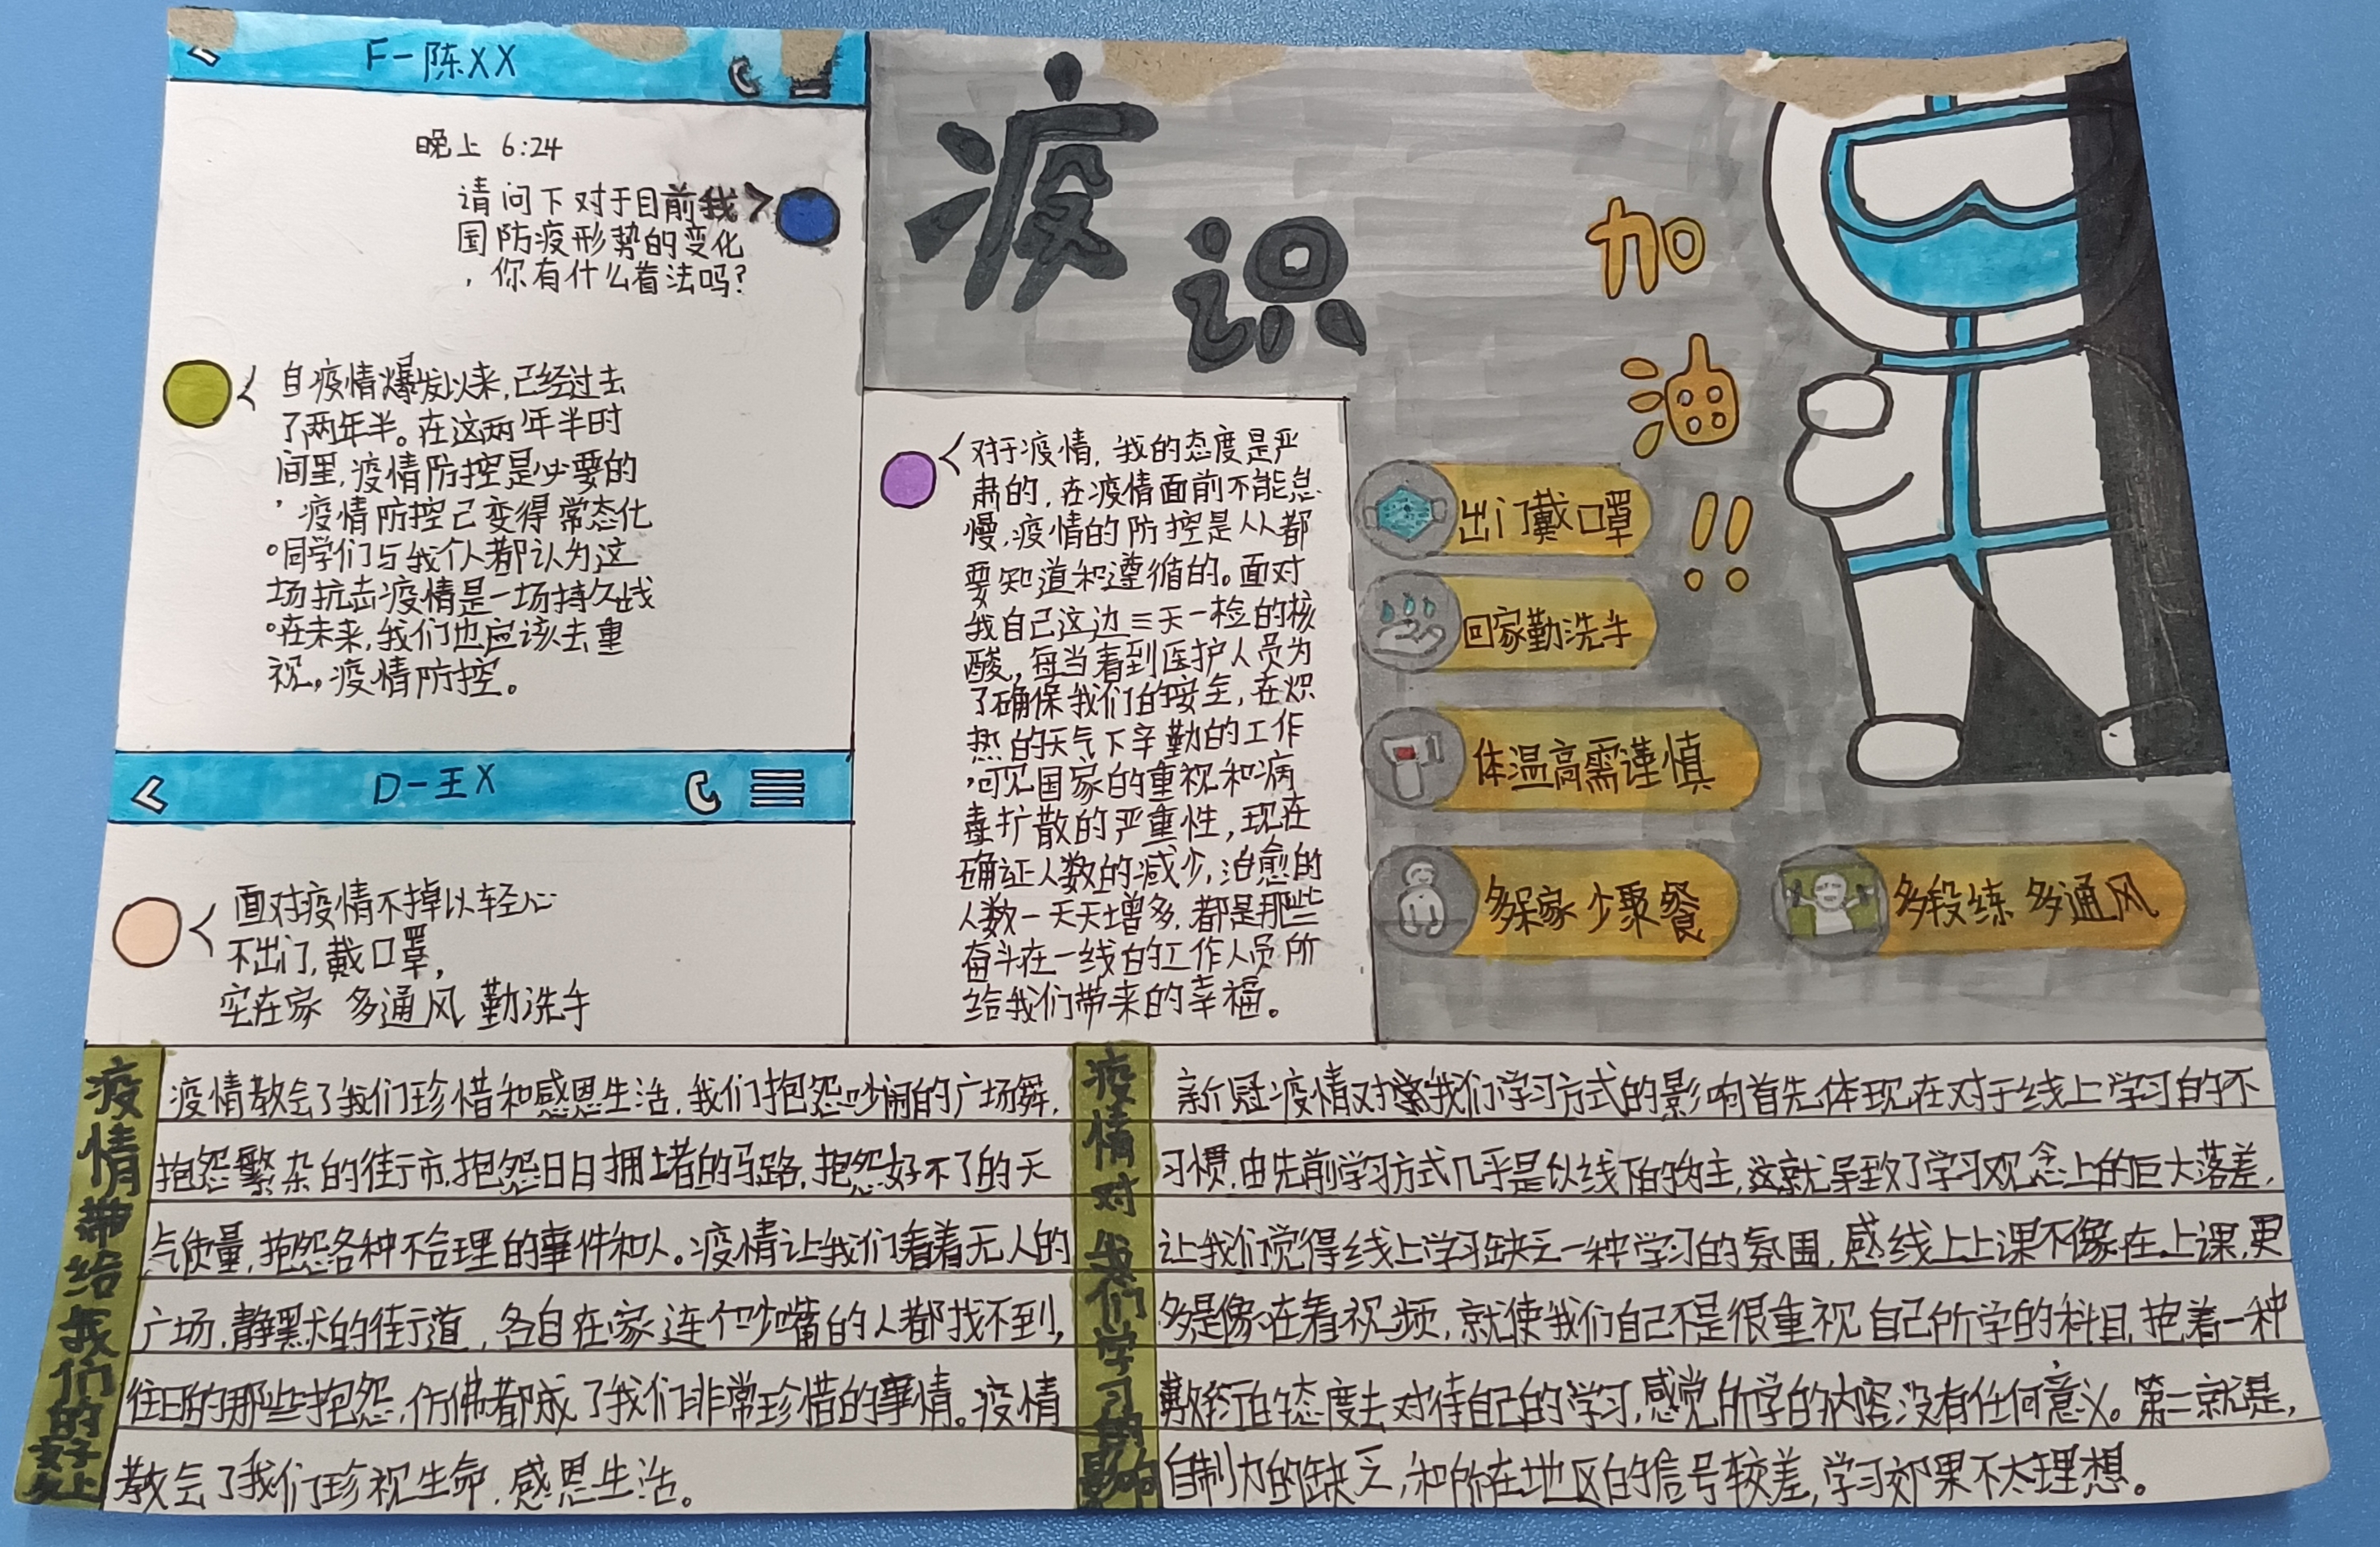 F-陈XX
晚上 6:24
请问下对于目前我
国防疫形势的变化
，你有什么看法吗？
自疫情爆发以来，已经过去
了两年半。在这两年半时
间里，疫情防控是必要的
，疫情防控已变得常态化
。同学们与我个人都认为这
场抗击疫情是一场持久战
。在未来，我们也应该去重
视。疫情防控。
D-王X
面对疫情不掉以轻心
不出门，戴口罩，
宅在家 多通风 勤洗手
疫识
对于疫情，我的态度是严
肃的，在疫情面前不能怠
慢，疫情的防控是人人都
要知道和遵循的。面对
我自己这边三天一检的核
酸，每当看到医护人员为
了确保我们的安全，在炽
热的天气下辛勤的工作
，可见国家的重视和病
毒扩散的严重性，现在
确证人数的减少，治愈的
人数一天天增多，都是那些
奋斗在一线的工作人员所
给我们带来的幸福。
加油!!
出门戴口罩
回家勤洗手
体温高需谨慎
多保家 少聚餐
多段练 多通风
疫情带给我们的好处
疫情教会了我们珍惜和感恩生活，我们抱怨吵闹的广场舞，
抱怨繁杂的街市，抱怨日日拥堵的马路，抱怨好不了的天
气质量，抱怨各种不合理的事件和人。疫情让我们看着无人的
广场，静默的街道，各自在家连个吵嘴的人都找不到，
往日的那些抱怨，仿佛都成了我们非常珍惜的事情。疫情
教会了我们珍视生命，感恩生活。
疫情对我们学习的影响
新冠疫情对我们学习方式的影响首先体现在对于线上学习的不
习惯，由先前学习方式几乎是以线下的为主，这就导致了学习观念上的巨大落差，
让我们觉得线上学习缺乏一种学习的氛围，感线上上课不像在上课，更
多是像在看视频，就使我们自己不是很重视自己所学的科目，抱着一种
敷衍的态度去对待自己的学习，感觉所学的内容没有任何意义。第二就是，
自制力的缺乏，和所在地区的信号较差，学习效果不太理想。